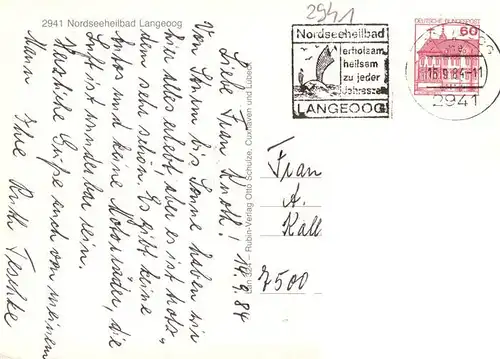 2941 Nordseeheilbad Langeoog
Liebe Frau Knoth! 14.9.84
Von Sturm bis Sonne haben wir
hier alles erlebt, aber es ist trotz-
dem sehr schön. Es gibt keine
Autos und keine Motorräder, die
Luft ist wunderbar rein.
Herzliche Grüße auch von meinem
Mann Ihre Ruth Teschke
Lan 324 – Rubin-Verlag Otto Schulze, Cuxhaven und Lübeck
2941
Nordseeheilbad
erholsam
heilsam
zu jeder
Jahreszeit
LANGEOOG
DEUTSCHE BUNDESPOST
60
15.9.84-11
2941
Frau
A.
Kall
7500